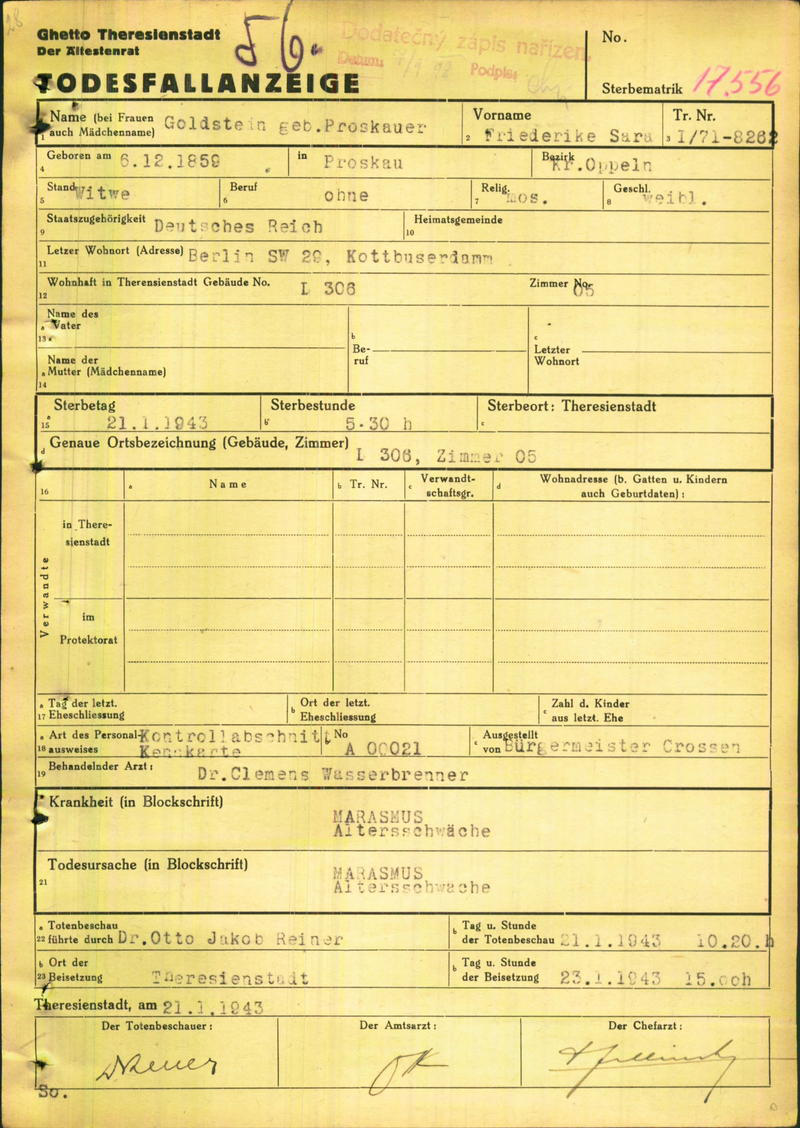 Ghetto Theresienstadt
Der Ältestenrat
Dodatečný zápis nařízen
Datum:
Podpis:
No.
TODESFALLANZEIGE
Sterbematrik 17.556
Name (bei Frauen auch Mädchenname) Goldstein geb.Proskauer
1
Vorname
2 Friederike Sara
Tr. Nr.
3 I/71-8262
Geboren am 6.12.1859
4
in Proskau
Bezirk Kr.Oppeln
Stand Witwe
5
Beruf ohne
6
Relig. mos.
7
Geschl. weibl.
8
Staatszugehörigkeit Deutsches Reich
9
Heimatsgemeinde
10
Letzer Wohnort (Adresse) Berlin SW 29, Kottbuserdamm
11
Wohnhaft in Theresienstadt Gebäude No. L 306
12
Zimmer No. 05
Name des
a Vater
13
b
Be-
ruf
c
Letzter
Wohnort
Name der
a Mutter (Mädchenname)
14
Sterbetag
15 a 21.1.1943
Sterbestunde
b 5.30 h
Sterbeort: Theresienstadt
c
d Genaue Ortsbezeichnung (Gebäude, Zimmer) L 306, Zimmer 05
16
a Name
b Tr. Nr.
c Verwandt-
schaftsgr.
d Wohnadresse (b. Gatten u. Kindern
auch Geburtdaten):
Verwandte
in There-
sienstadt
im
Protektorat
a Tag der letzt.
17 Eheschliessung
b Ort der letzt.
Eheschliessung
c Zahl d. Kinder
aus letzt. Ehe
a Art des Personal- Kontrollabschnitt
18 ausweises Kennkarte
b No
A 00021
c Ausgestellt
von Bürgermeister Crossen
Behandelnder Arzt: Dr.Clemens Wasserbrenner
19
Krankheit (in Blockschrift)
MARASMUS
Altersschwäche
Todesursache (in Blockschrift)
21
MARASMUS
Altersschwache
a Totenbeschau
22 führte durch Dr.Otto Jakob Reiner
b Tag u. Stunde
der Totenbeschau 21.1.1943 10.20.h
b Ort der
23 Beisetzung Theresienstadt
b Tag u. Stunde
der Beisetzung 23.1.1943 15.ooh
Theresienstadt, am 21.1.1943
Der Totenbeschauer:
Der Amtsarzt:
Der Chefarzt:
So.